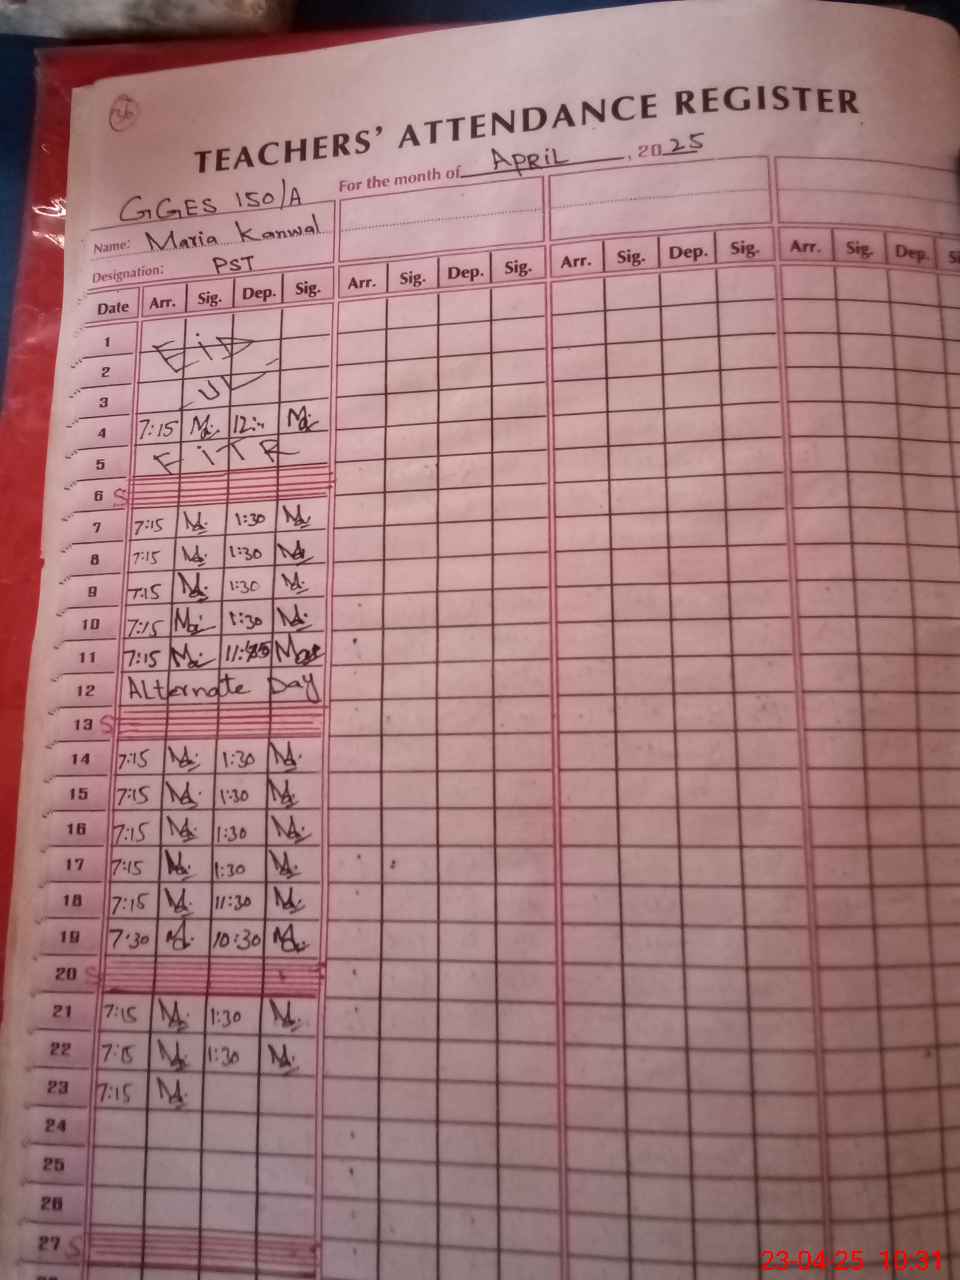 36
TEACHERS' ATTENDANCE REGISTER
For the month of APRIL, 2025
GGES 150/A
Name: Maria Kanwal
Designation: PST
Date Arr. Sig. Dep. Sig. Arr. Sig. Dep. Sig. Arr. Sig. Dep. Sig. Arr. Sig. Dep.
1 EiD
2
3 UL
4 7:15 12:
5 FiTR
6 S
7 7:15 1:30
8 7:15 1:30
9 7:15 1:30
10 7:15 1:30
11 7:15
12 ALternate Day
13 S
14 7:15 1:30
15 7:15 1:30
16 7:15 1:30
17 7:15 1:30
18 7:15 11:30
19 7:30 10:30
20 S
21 7:15 1:30
22 7:15 1:30
23 7:15
24
25
26
27 S
23-04-25 10:31